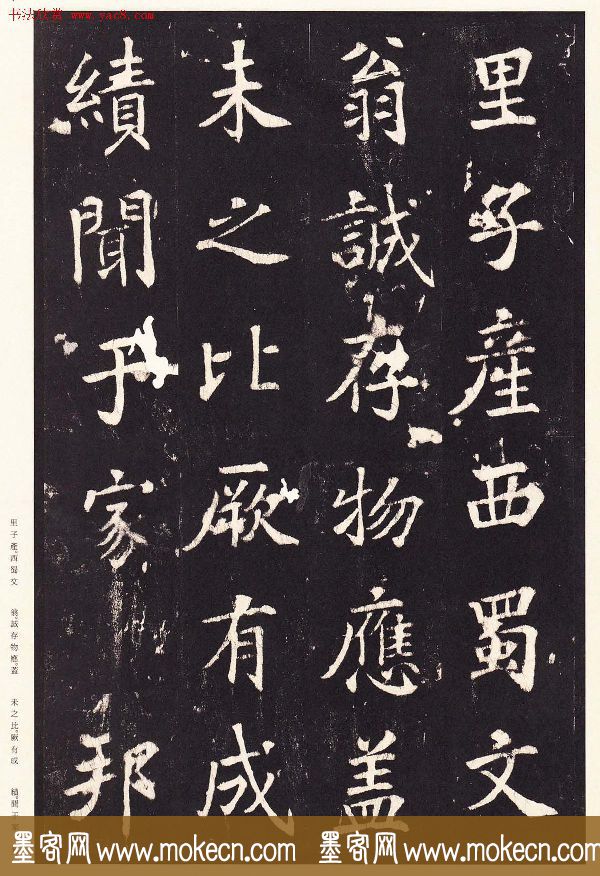 书法欣赏 www.yac8.com
里子產西蜀文
翁誠存物應盖
未之比厥有成
績聞于家邦
里子產西蜀文
翁誠存物應蓋
未之比厥有成
績聞于
墨客网 www.mokecn.com 墨客网 www.mokecn.com